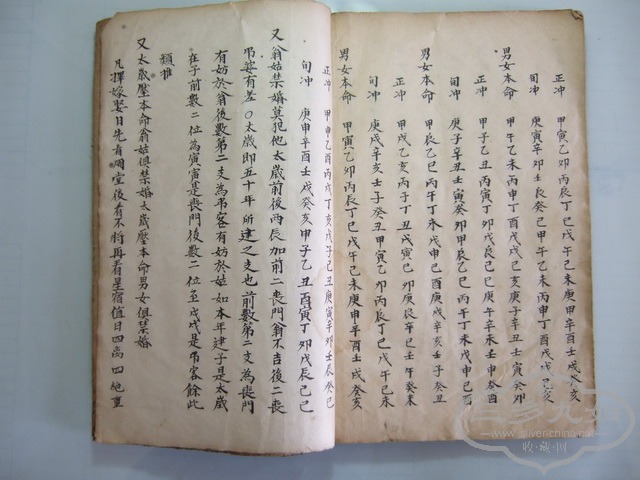 正冲 甲寅乙卯丙辰丁巳戊午己未庚甲辛酉壬戌癸亥
旬冲 庚寅辛卯壬辰癸巳甲午乙未丙申丁酉戊戌己亥
男女本命 甲午乙未丙申丁酉戊戌己亥庚子辛丑壬寅癸卯
正冲 甲子乙丑丙寅丁卯戊辰己巳庚午辛未壬申癸酉
旬冲 庚子辛丑壬寅癸卯甲辰乙巳丙午丁未戊申己酉
男女本命 甲辰乙巳丙午丁未戊申己酉庚戌辛亥壬子癸丑
正冲 甲戌乙亥丙子丁丑戊寅己卯庚辰辛巳壬午癸未
旬冲 庚戌辛亥壬子癸丑甲寅乙卯丙辰丁巳戊午己未
男女本命 甲寅乙卯丙辰丁巳戊午己未庚申辛酉壬戌癸亥
正冲 甲申乙酉丙戌丁亥戊子己丑庚寅辛卯壬辰癸巳
旬冲 庚申辛酉壬戌癸亥甲子乙丑丙寅丁卯戊辰己巳
又翁姑禁婚莫犯他太歲前後两辰加前二丧門翁不吉後二丧
吊婆有差○太歲即五十年所建之支也前數第二支為丧門
有妨於翁後數第二支為吊客有妨於姑如本年建子是太歲
在子前數二位為寅寅是丧門後數二位至戌戌是吊客餘此
類推
又太歲壓本命翁姑俱禁婚太歲壓本命男女俱禁婚
凡擇嫁娶日先看周堂後看不將再看星宿值日四离四绝重
www.silver-china.net
收·藏·网